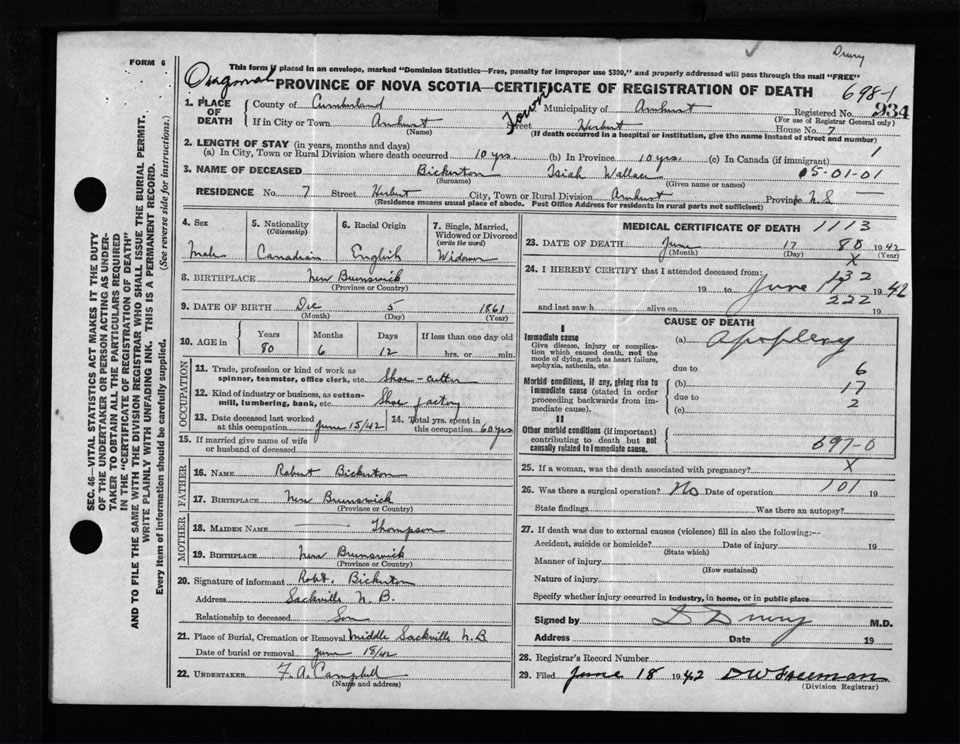 Drury
FORM 6
This form if placed in an envelope, marked "Dominion Statistics—Free, penalty for improper use $300," and properly addressed will pass through the mail "FREE"
PROVINCE OF NOVA SCOTIA—CERTIFICATE OF REGISTRATION OF DEATH
698-1
1. PLACE OF DEATH
County of Cumberland Town Municipality of Amherst Registered No. 934
(For use of Registrar General only)
If in City or Town Amherst Street Herbert House No. 7
(Name) (If death occurred in a hospital or institution, give the name instead of street and number)
2. LENGTH OF STAY (in years, months and days)
(a) In City, Town or Rural Division where death occurred 10 yrs. (b) In Province 10 yrs. (c) In Canada (if immigrant) 1
3. NAME OF DECEASED Bickerton Isiah Wallace 05-01-01
(Surname) (Given name or names)
RESIDENCE No. 7 Street Herbert City, Town or Rural Division Amherst Province N.S —
(Residence means usual place of abode. Post Office Address for residents in rural parts not sufficient)
4. Sex
Male
5. Nationality
(Citizenship)
Canadian
6. Racial Origin
English
7. Single, Married, Widowed or Divorced
(write the word)
Widower
8. BIRTHPLACE New Brunswick
(Province or Country)
9. DATE OF BIRTH Dec 5 1861
(Month) (Day) (Year)
10. AGE in Years Months Days If less than one day old
80 6 12 hrs. or min.
OCCUPATION
11. Trade, profession or kind of work as spinner, teamster, office clerk, etc. Shoe-cutter
12. Kind of industry or business, as cotton-mill, lumbering, bank, etc. Shoe factory
13. Date deceased last worked at this occupation June 15/42 14. Total yrs. spent in this occupation 60 yrs
15. If married give name of wife or husband of deceased
FATHER
16. NAME Robert Bickerton
17. BIRTHPLACE New Brunswick
(Province or Country)
MOTHER
18. MAIDEN NAME — Thompson
19. BIRTHPLACE New Brunswick
(Province or Country)
20. Signature of informant Robt. Bickerton
Address Sackville N.B.
Relationship to deceased Son
21. Place of Burial, Cremation or Removal Middle Sackville N.B
Date of burial or removal June 18/42
22. UNDERTAKER F. A. Campbell
(Name and address)
MEDICAL CERTIFICATE OF DEATH 1113
23. DATE OF DEATH June 17 80 1942
(Month) (Day) X
24. I HEREBY CERTIFY that I attended deceased from: 132
19 to June 17 1942
222
and last saw h alive on 19
CAUSE OF DEATH
I
Immediate cause
Give disease, injury or complication which caused death, not the mode of dying, such as heart failure, asphyxia, asthenia, etc.
(a) Apoplexy
due to 6
Morbid conditions, if any, giving rise to immediate cause (stated in order proceeding backwards from immediate cause).
(b) 17
due to 2
(c)
II
Other morbid conditions (if important) contributing to death but not causally related to immediate cause.
697-0
25. If a woman, was the death associated with pregnancy? X
26. Was there a surgical operation? No Date of operation 101 19
State findings Was there an autopsy?
27. If death was due to external causes (violence) fill in also the following:—
Accident, suicide or homicide? Date of injury 19
(State which)
Manner of injury
(How sustained)
Nature of injury
Specify whether injury occurred in industry, in home, or in public place
Signed by D Drury M.D.
Address Date 19
28. Registrar's Record Number
29. Filed June 18 1942 DW Freeman
(Division Registrar)
SEC. 46—VITAL STATISTICS ACT MAKES IT THE DUTY
OF THE UNDERTAKER OR PERSON ACTING AS UNDER-
TAKER TO OBTAIN ALL THE PARTICULARS REQUIRED
IN THE "CERTIFICATE OF REGISTRATION OF DEATH"
AND TO FILE THE SAME WITH THE DIVISION REGISTRAR WHO SHALL ISSUE THE BURIAL PERMIT.
WRITE PLAINLY WITH UNFADING INK. THIS IS A PERMANENT RECORD.
Every item of information should be carefully supplied. (See reverse side for instructions.)